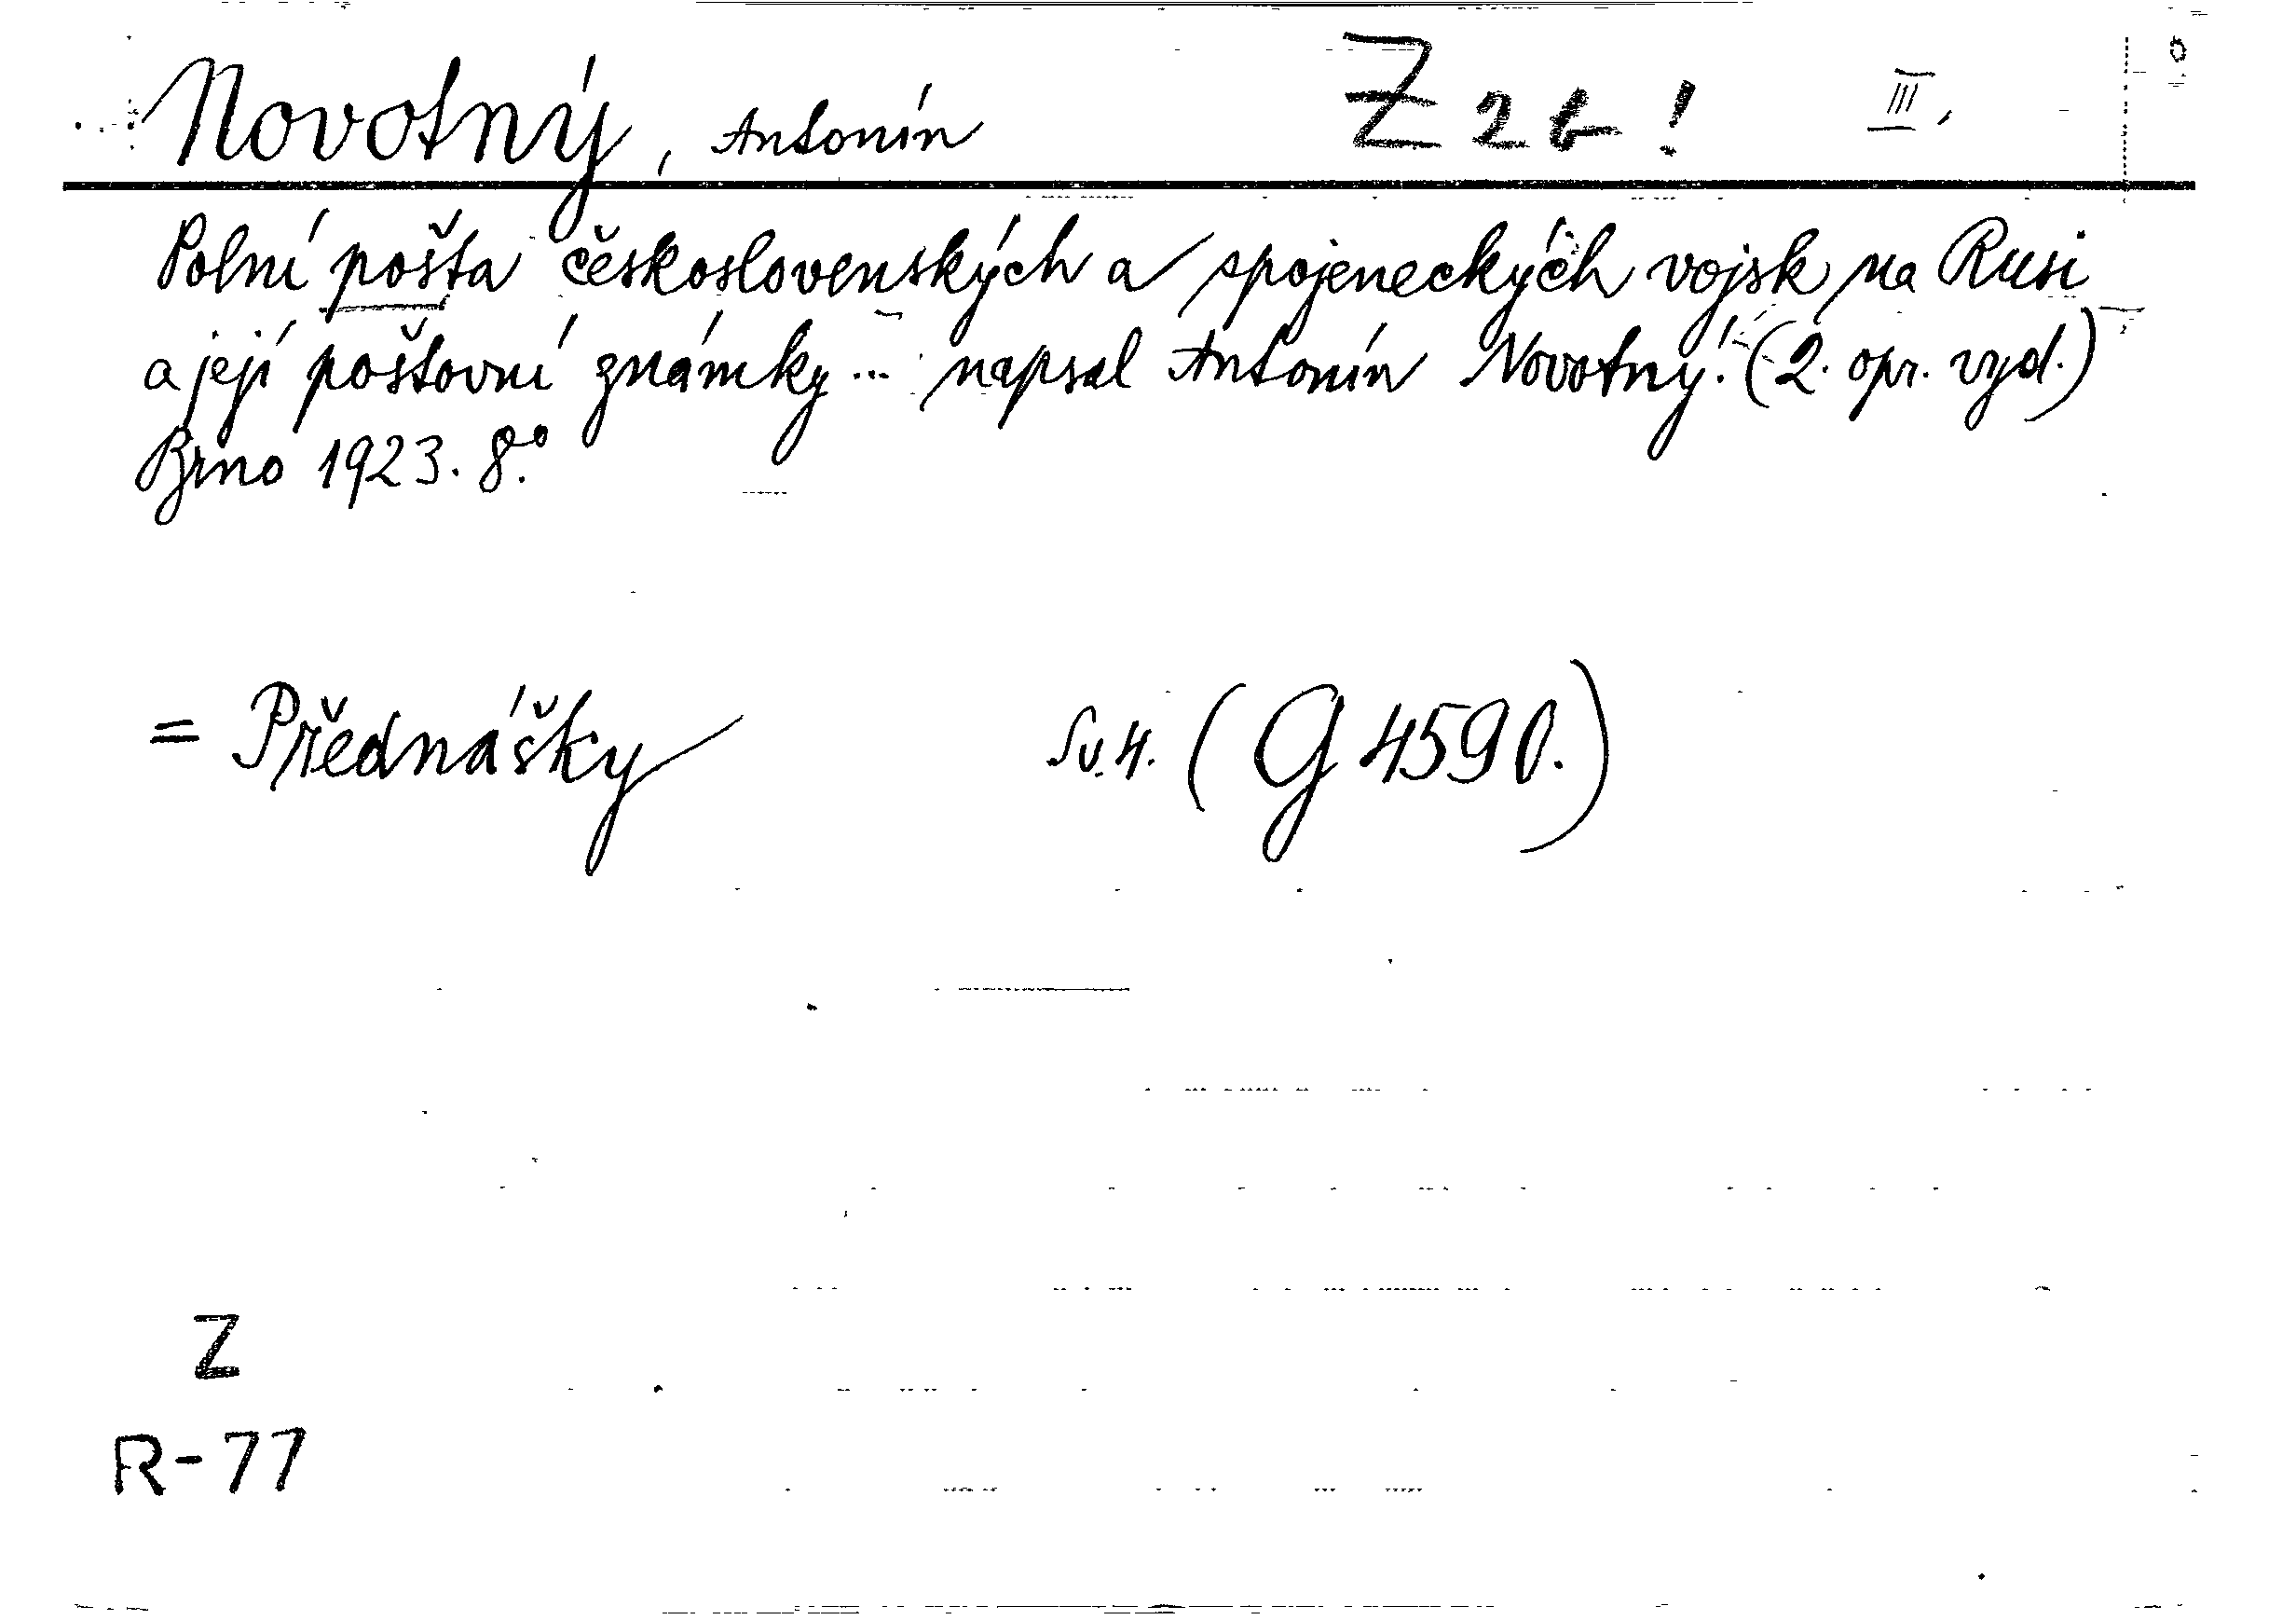 Novotný, Antonín Z 2b! III.
Polní pošta československých a spojeneckých vojsk na Rusi
a její poštovní známky ... napsal Antonín Novotný. (2. opr. vyd.)
Brno 1923. 8°.
= Přednášky Sv. 4. (G 4590.)
Z
R-77